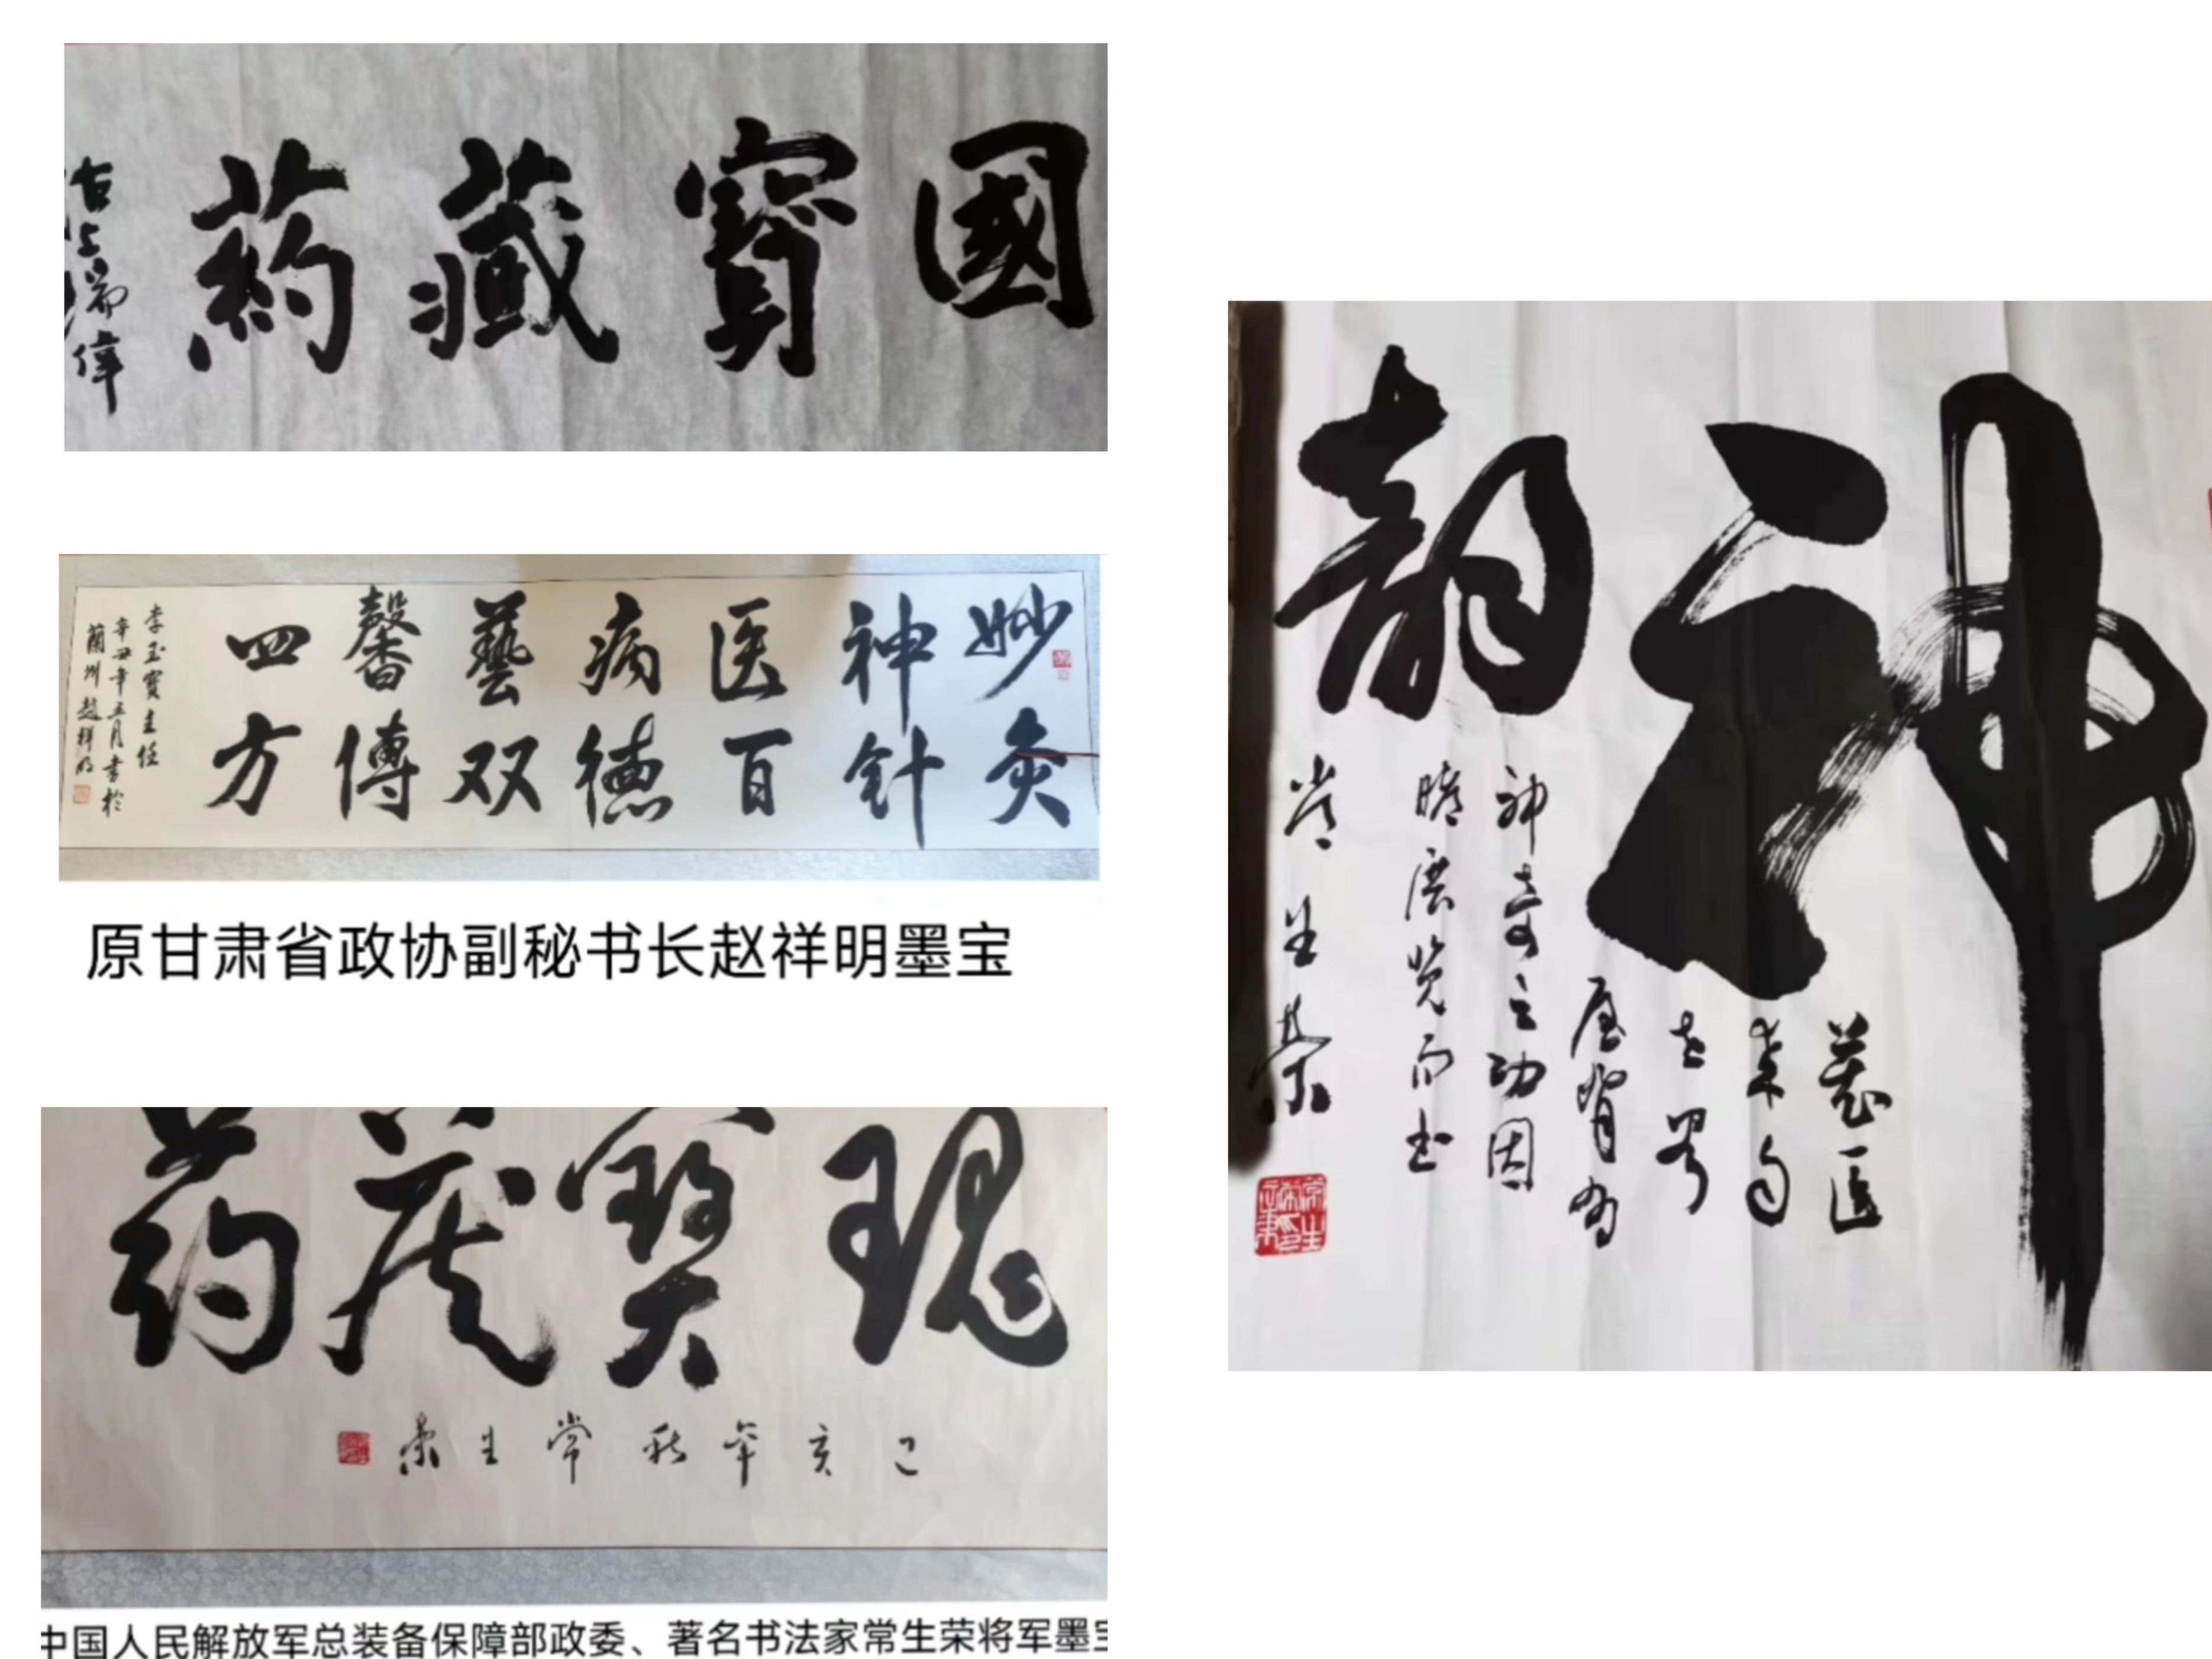 國寳藏葯
妙灸
神針
医百
病德
藝双
馨傳
四方
李玉寳主任
辛丑年五月書於
蘭州趙祥明
原甘肃省政协副秘书长赵祥明墨宝
瑰寶藏药
己亥年秋常生荣
中国人民解放军总装备保障部政委、著名书法家常生荣将军墨宝
神韵
藏医
神奇之功因
瞻展览而书
常生荣